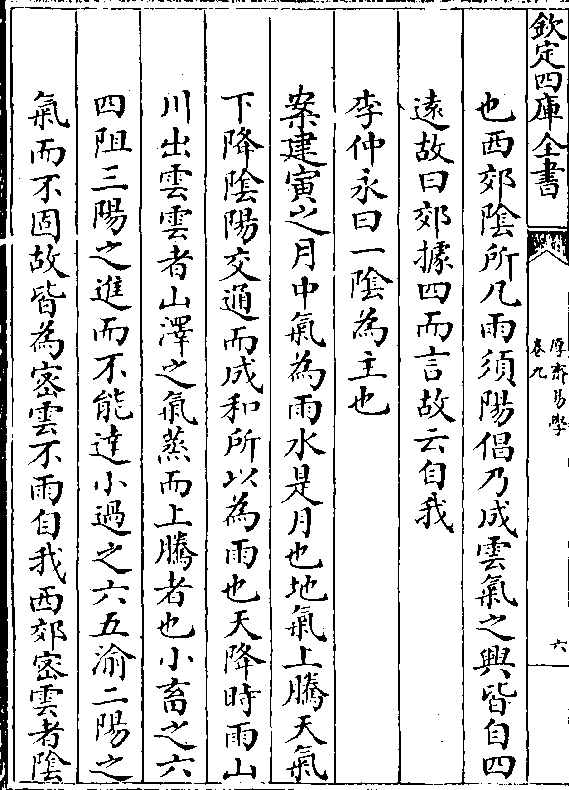 欽定四庫全書
厚齋易學
卷九
六
也西郊陰所凡雨須陽倡乃成雲氣之興皆自四
遠故曰郊據四而言故云自我
李仲永曰一陰為主也
案建寅之月中氣為雨水是月也地氣上騰天氣
下降陰陽交通而成和所以為雨也天降時雨山
川出雲雲者山澤之氣蒸而上騰者也小畜之六
四阻三陽之進而不能達小過之六五渝二陽之
氣而不固故皆為密雲不雨自我西郊密雲者陰